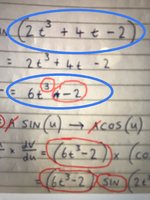 IN (2t³ + 4t - 2)
= 2t³ + 4t - 2
= 6t³ + -2
A SIN(u) → A COS(u)
x dv/du = (6t³-2) x (
= (6t³-2) SIN (2t